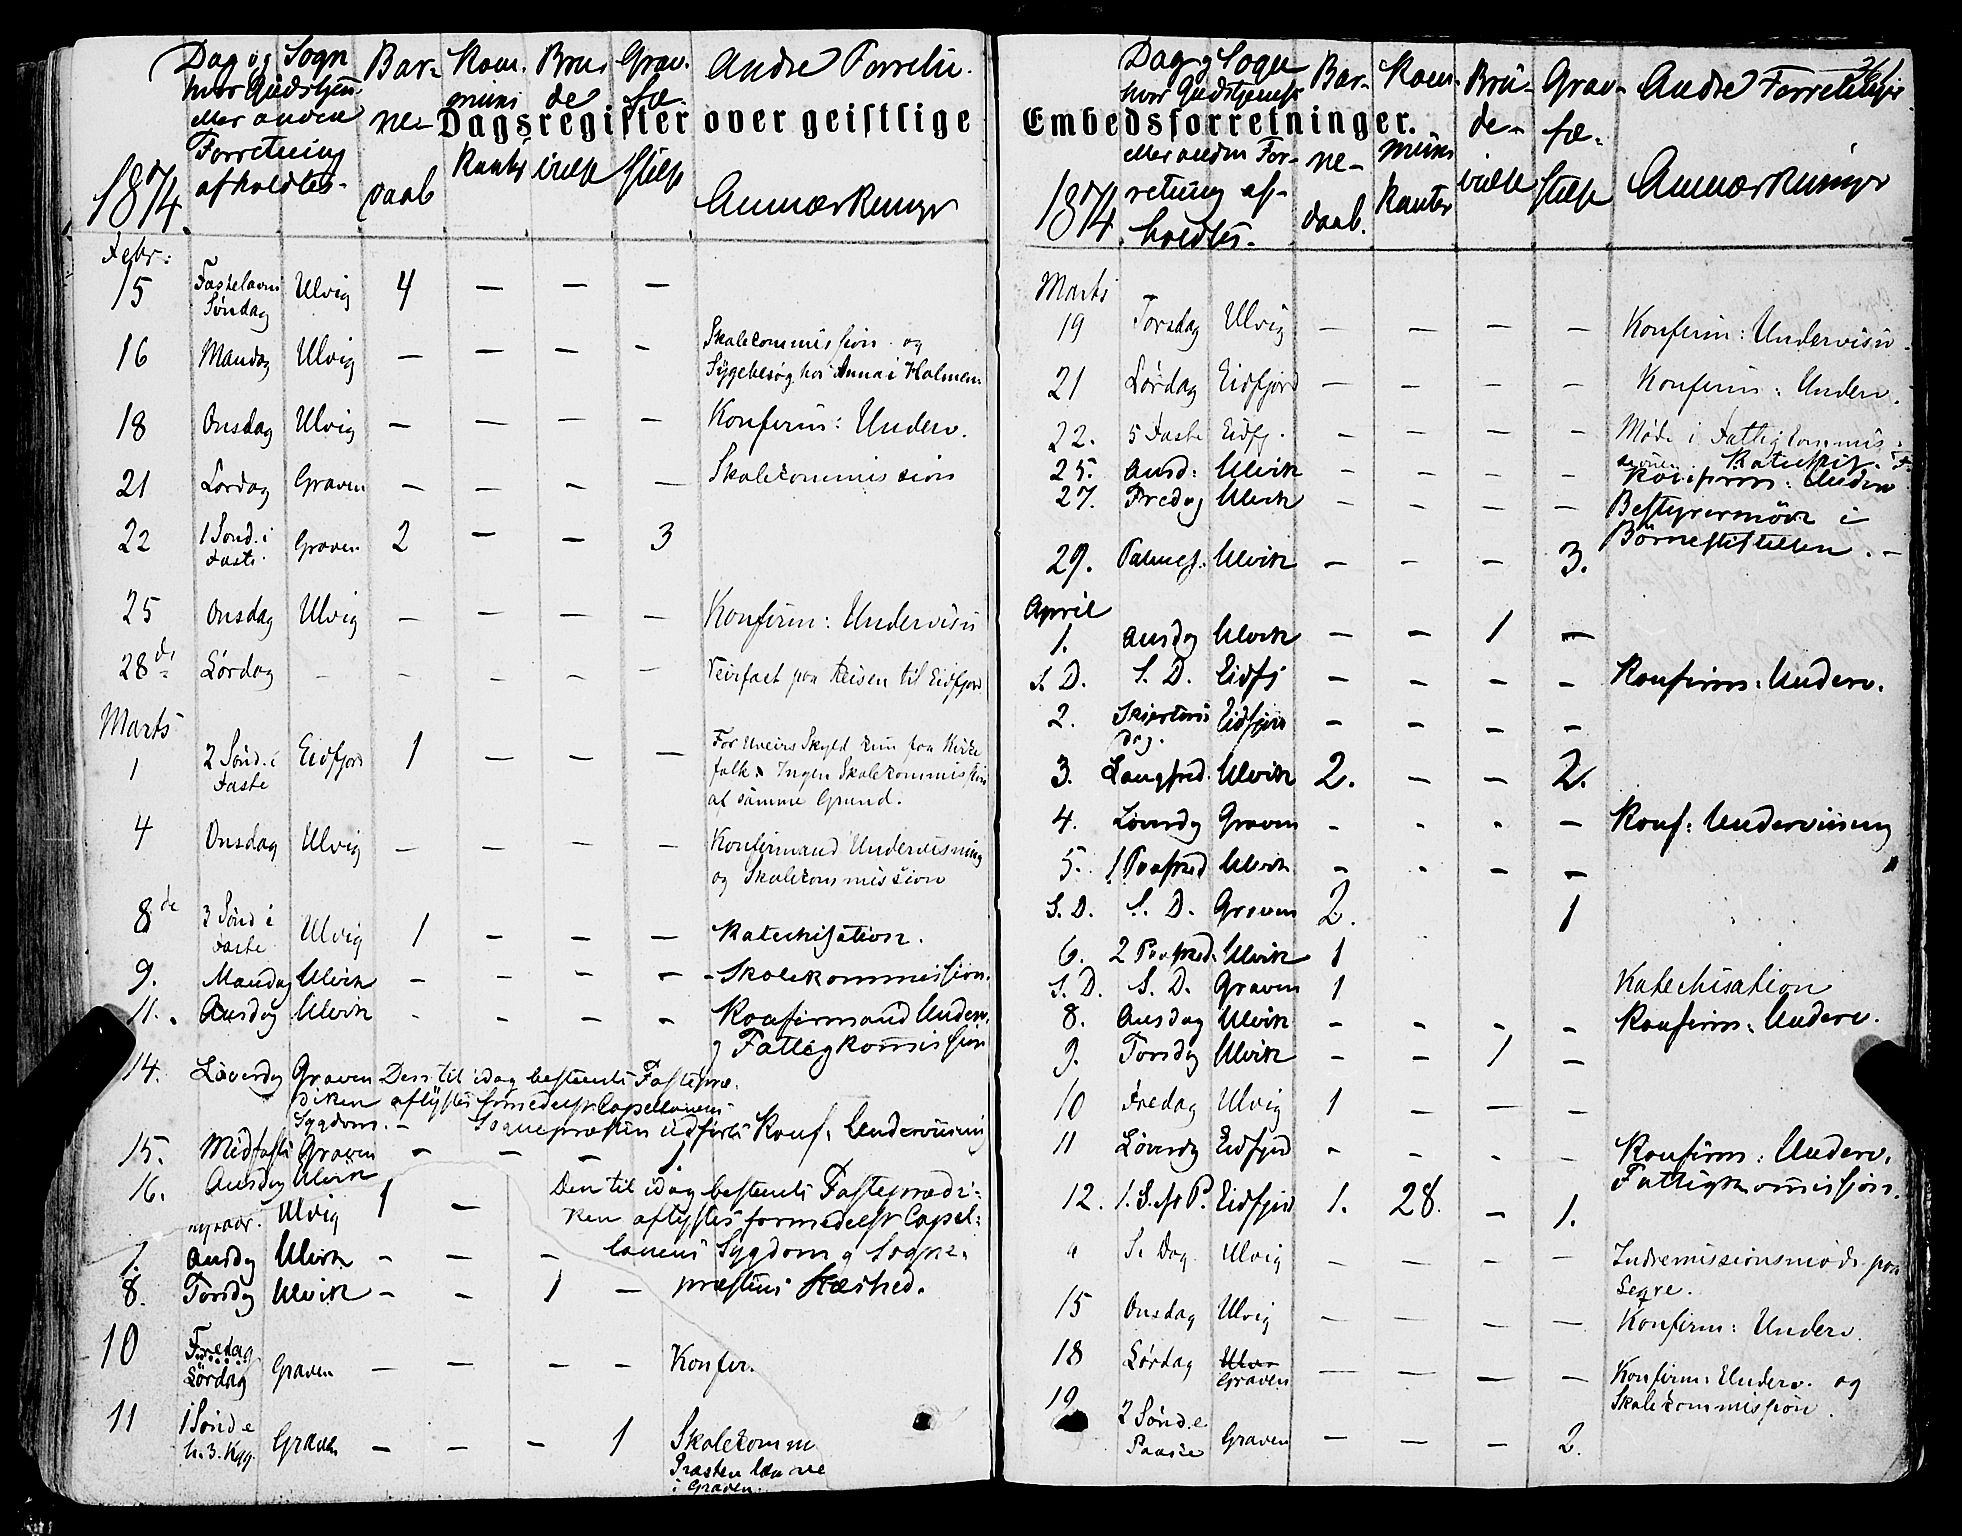 Dagsregister over geistlige Embedsforretninger.
Dag og Sogn
hvor Gudstjen.
eller anden
Forretning
afholdtes.
1874.
Barnedaab
Kommunikanter
Brudevielse
Gravfæstelse
Andre Forretn.
Anmærkninger
Febr:
15 Fastelavns Søndag Ulvig 4 — — —
16 Mandag Ulvig — — — — Skolecommission og
Sygebesøg hos Anna i Holmen
18 Onsdag Ulvig — — — — Konfirm: Underv.
21 Lørdag Graven — — — — Skolecommission
22 1 Sønd. i Faste Graven 2 — — 3
25 Onsdag Ulvig — — — — Konfirm: Undervisn
28de Lørdag — — — — — Veirfast paa Reisen til Eidfjord
Marts
1 2 Sønd. i Faste Eidfjord 1 — — — For Uveirs Skyld kun faa Kirke
folk. Ingen Skolecommission
af samme Grund.
4 Onsdag Ulvig — — — — Konfirmand Undervisning
og Skolecommission
8de 3 Sønd i Faste Ulvig 1 — — — Katechisation.
9. Mandag Ulvik — — — — Skolekommission.
11. Onsdag Ulvik — — — — Konfirmand Underv.
og Fattigkommission
14. Løverdg Graven Den til idag bestemte Fastepræ-
diken aflystes formedelst Capellanens
Sygdom. — Sognepræsten udførte Konf: Undervisning
15. Midfaste Graven — — — 1
16. Onsdag Ulvik Den til idag bestemte Fasteprædi-
ken aflystes formedelst Capel-
lanens Sygdom og Sogne-
præstens Hæshed.
Nytaar. Ulvig 1 —
1. Onsdg Ulvik — — —
8. Torsdg Ulvik — — 1 —
10 Fredag
Lørdag Graven — — — — Konfir.
11 1 Sønd e
h. 3. Kgg. Graven — — — 1 Skolekomm
Præsten
i Graven.
261
Dag og Sogn
hvor Gudstjeneste
eller anden For-
retning af-
holdtes.
1874.
Barnedaab.
Kommunikanter
Brudevielse
Gravfæstelse
Andre Forretninger
Anmærkninger
Marts
19 Torsdag Ulvig — — — — Konfirm: Undervisn.
21 Lørdag Eidfjord — — — — Konfirm: Underv.
22. 5 Faste Eidfj. — — — — Møde i Fattigkommis-
sionen. Katechis.
25. Onsd: Ulvik — — — — Konfirm: Underv
27. Fredag Ulvik — — — — Bestyrermøde i
Börnestiftelsen. —
29. Palmes. Ulvik — — — 3.
April
1. Onsdg Ulvik — — 1 —
S. D. S. D. Eidfj — — — — Konfirm: Underv.
2. Skjertorsdag. Eidfjord — — — —
3. Langfred. Ulvik 2. — — 2.
4. Løverdg Graven — — — — Konf: Undervisning
5. 1 Paasked Ulvik — — — —
S. D. S. D. Graven 2. 1
6. 2 Paasked. Ulvik 1
S. D. S. D. Graven 1 Katechisation
8. Onsdag Ulvik — — — — Konfirm: Underv.
9. Torsdg Ulvik — — 1 —
10 Fredag Ulvig 1 — — —
11 Løverdg Eidfjord — — — — Konfirm: Underv.
Fattigkommission.
12. 1. S. e. P. Eidfjord 1. 28. — 1.
" S. Dag Ulvig — — — — Indremissionsmøde paa
15 Onsdag Ulvig — — — — Konfirm: Underv.
18 Lørdag Ulv
Graven — — — — Konfirm: Underv. og
Skolekommission.
19 2 Sønd. e Paaske Graven — — — 2.